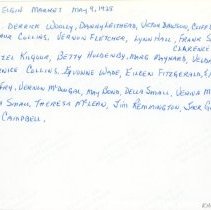 ELGIN MARKET MAY 9, 1925
DERRICK WOOLLY, DANNY LEITHEAD, VICTOR DAWSON, CLIFF
COLLINS, VERNON FLETCHER, LYNN HALL, FRANK S
CLARENCE
KILGOUR, BETTY HOLDENBY, MARG MAYNARD, VELDA
COLLINS, YVONNE WADE, EILEEN FITZGERALD,
VERNON McDOUGAL, MAY BOND, DELLA SMALL, VERNA M
SMALL, THERESA McLEAN, JIM REMMINGTON, JACK
CAMPBELL.